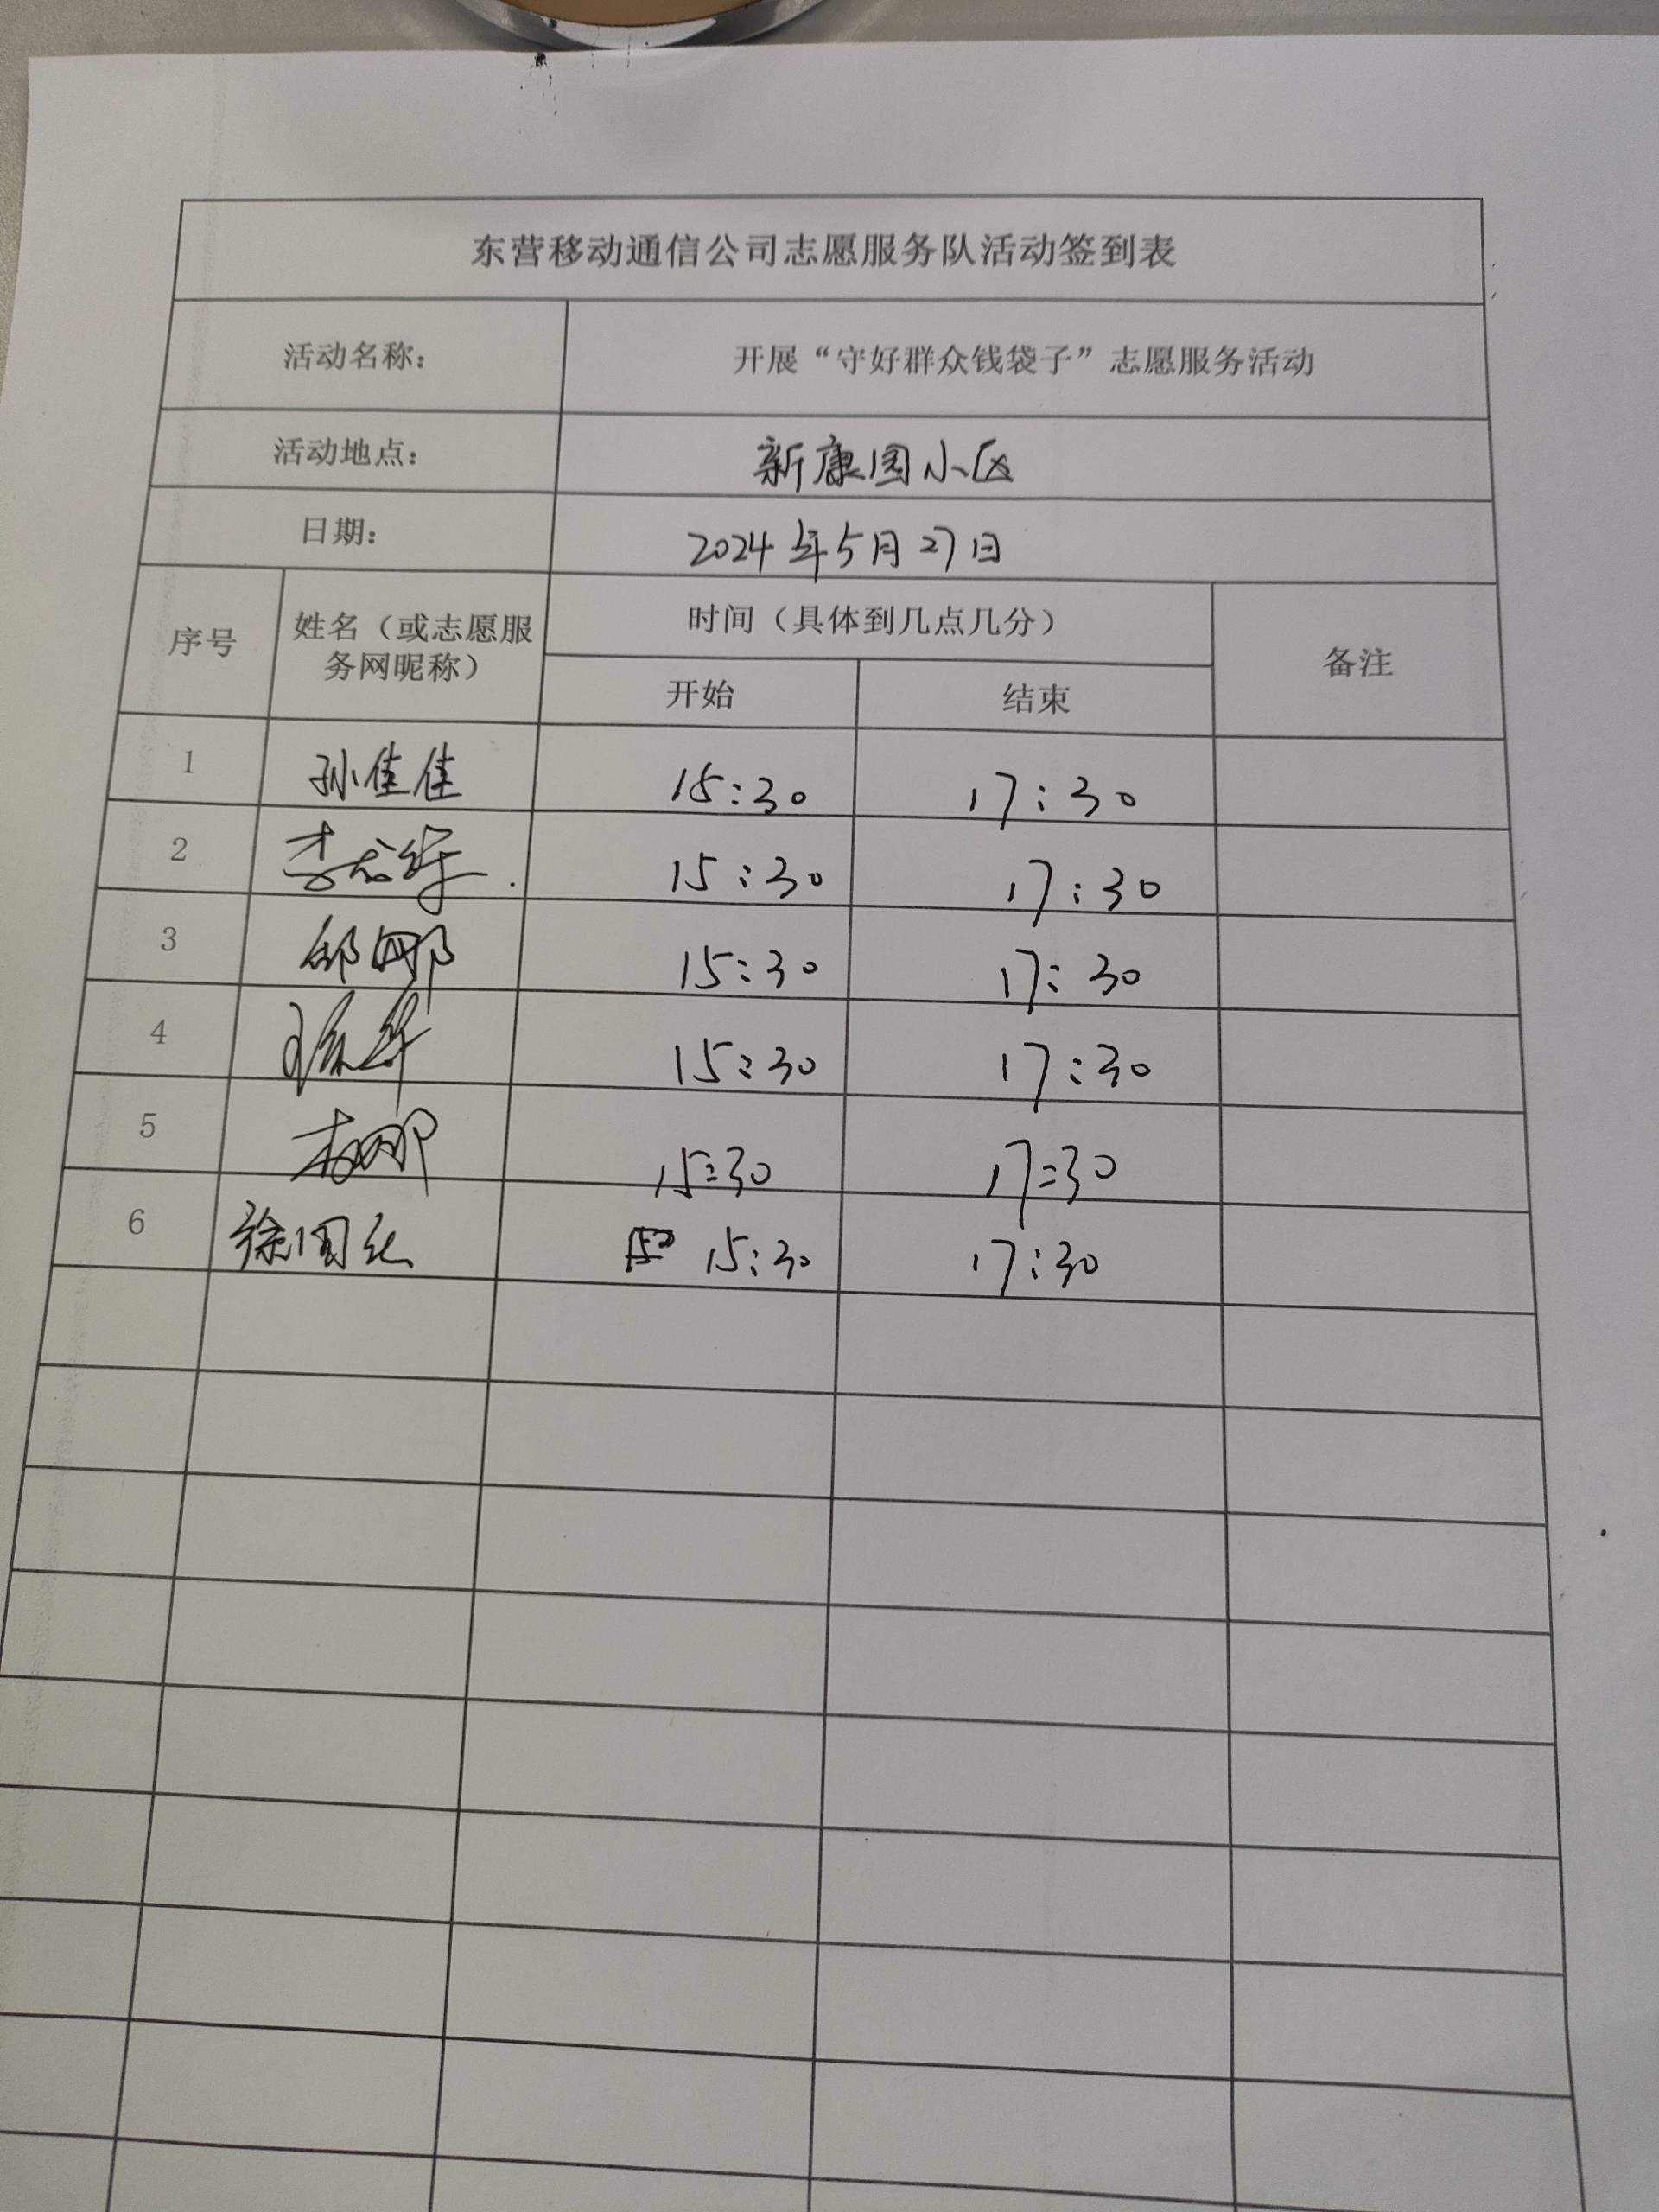 东营移动通信公司志愿服务队活动签到表
活动名称： 开展“守好群众钱袋子”志愿服务活动
活动地点： 新康园小区
日期： 2024年5月27日
序号 姓名（或志愿服务网昵称） 时间（具体到几点几分） 备注
开始 结束
1 孙佳佳 15:30 17:30
2 李 15:30 17:30
3 邹娜 15:30 17:30
4 15:30 17:30
5 15:30 17:30
6 徐国 15:30 17:30